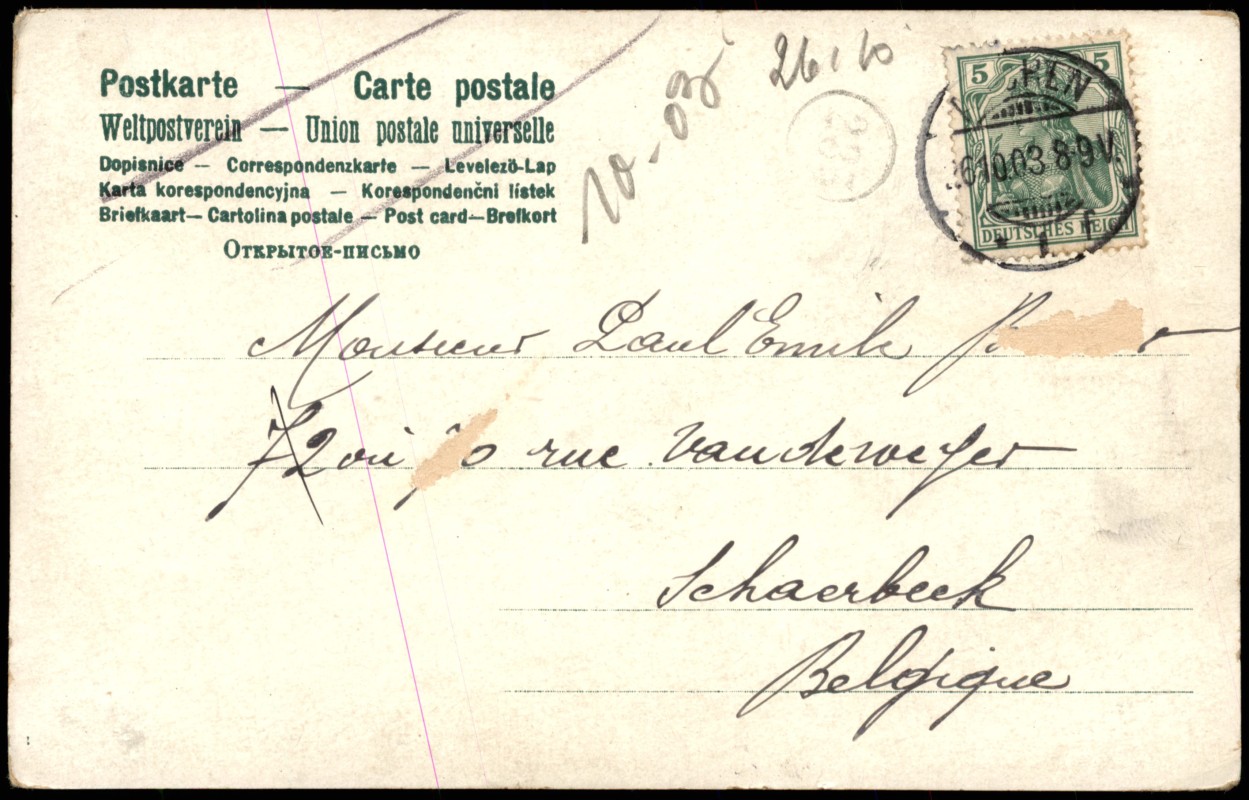 Postkarte — Carte postale
Weltpostverein — Union postale universelle
Dopisnice — Correspondenzkarte — Levelezö-Lap
Karta korespondencyjna — Korespondenčni lístek
Briefkaart — Cartolina postale — Post card — Brefkort
Открытое-письмо
10-03
26 10
5 5
DEUTSCHES REICH
6.10.03.8-9V.
Monsieur Paul Emile
72 ou rue Vandeweyer
Schaerbeek
Belgique